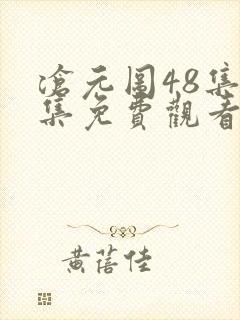 滄元圖48集
集免費觀看
黃蓓佳